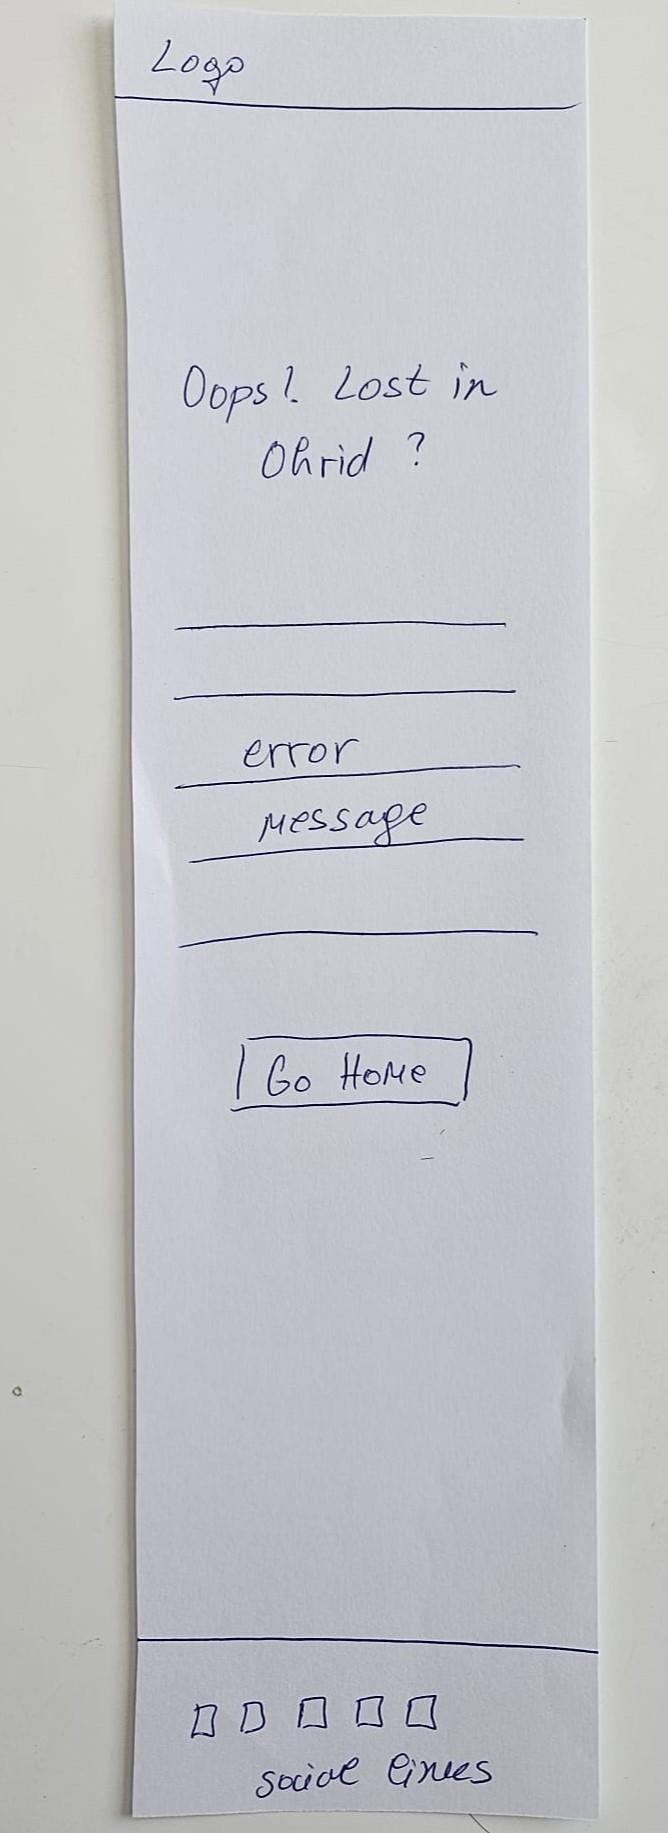 Logo
Oops! Lost in
Ohrid ?
error
message
Go Home
social links